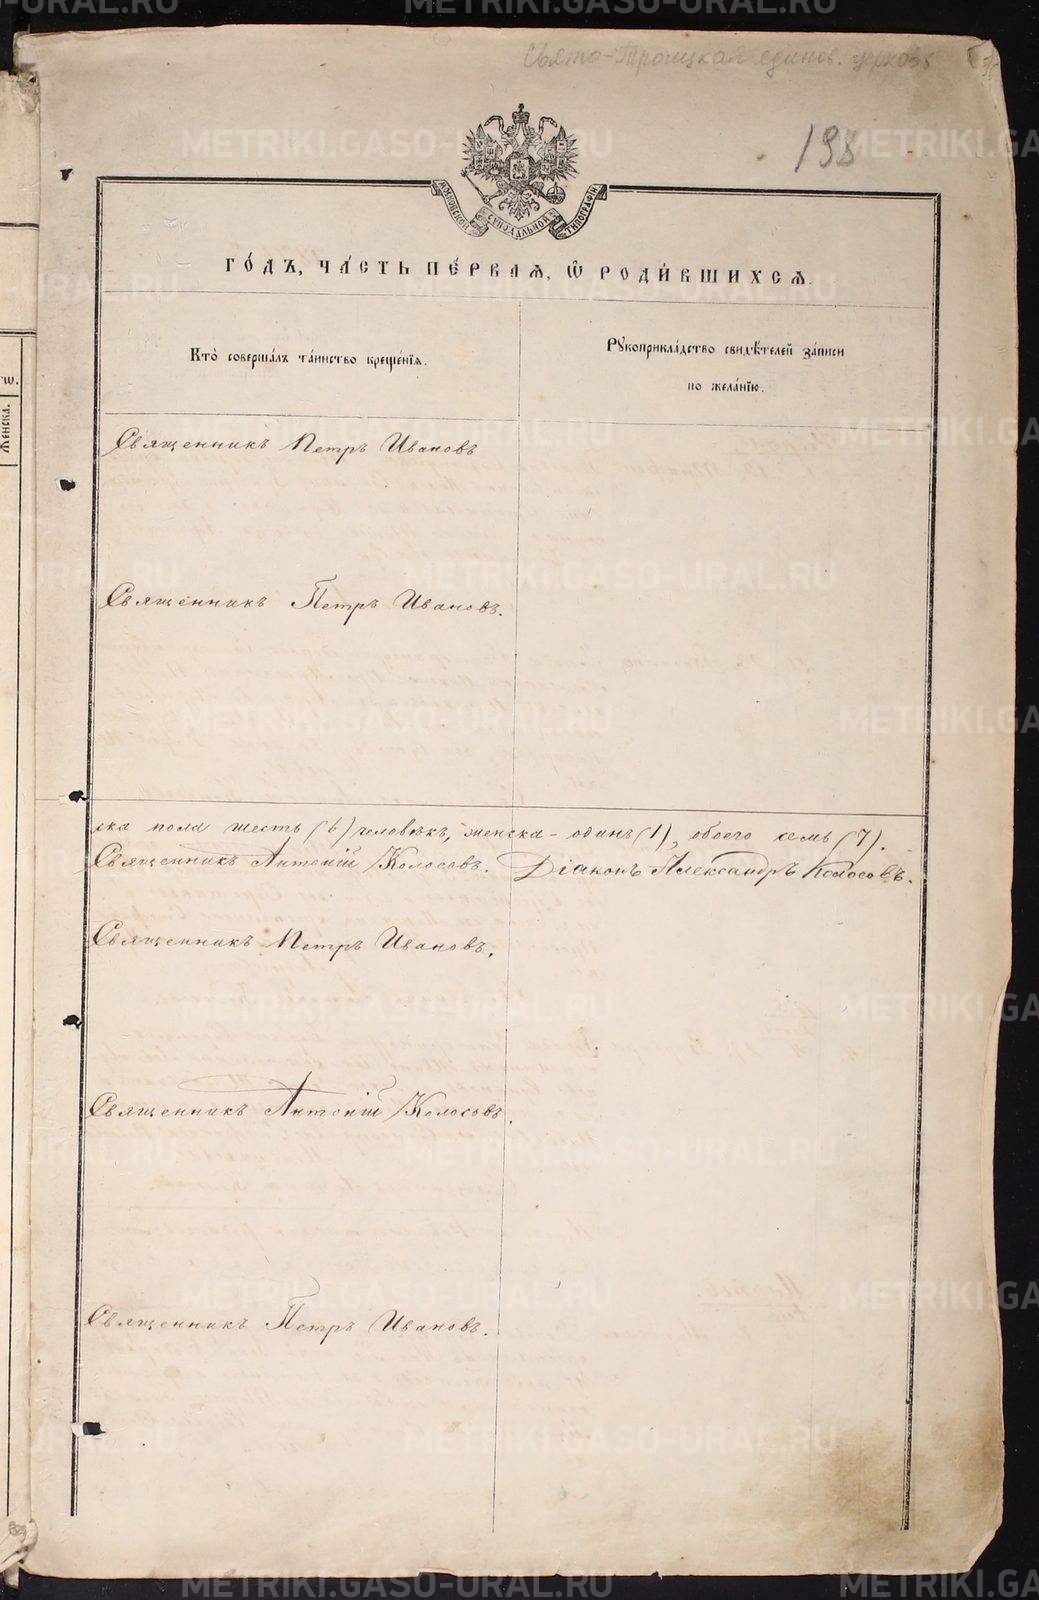 Свято-Троицкая единов. церковь
198
МОСКОВСКОЙ СѴНОДАЛЬНОЙ ТИПОГРАФІИ
ГО́ДЪ, ЧА́СТЬ ПЕ́РВАѦ, Ѡ҆ РОДИ́ВШИХСѦ.
Кто̀ соверша́лъ та́инство креще́нїѧ.
Рꙋкоприкла́дство свидѣ́телей за́писи
по жела́нїю.
тѡ.
Женска.
Священникъ Петръ Ивановъ
Священникъ Петръ Ивановъ.
ска пола шесть (6) человѣкъ, женска - одинъ (1), обоего семь (7).
Священникъ Антоній Колосовъ. Діаконъ Александръ Колосовъ.
Священникъ Петръ Ивановъ.
Священникъ Антоній Колосовъ.
Священникъ Петръ Ивановъ.
METRIKI.GASO-URAL.RU